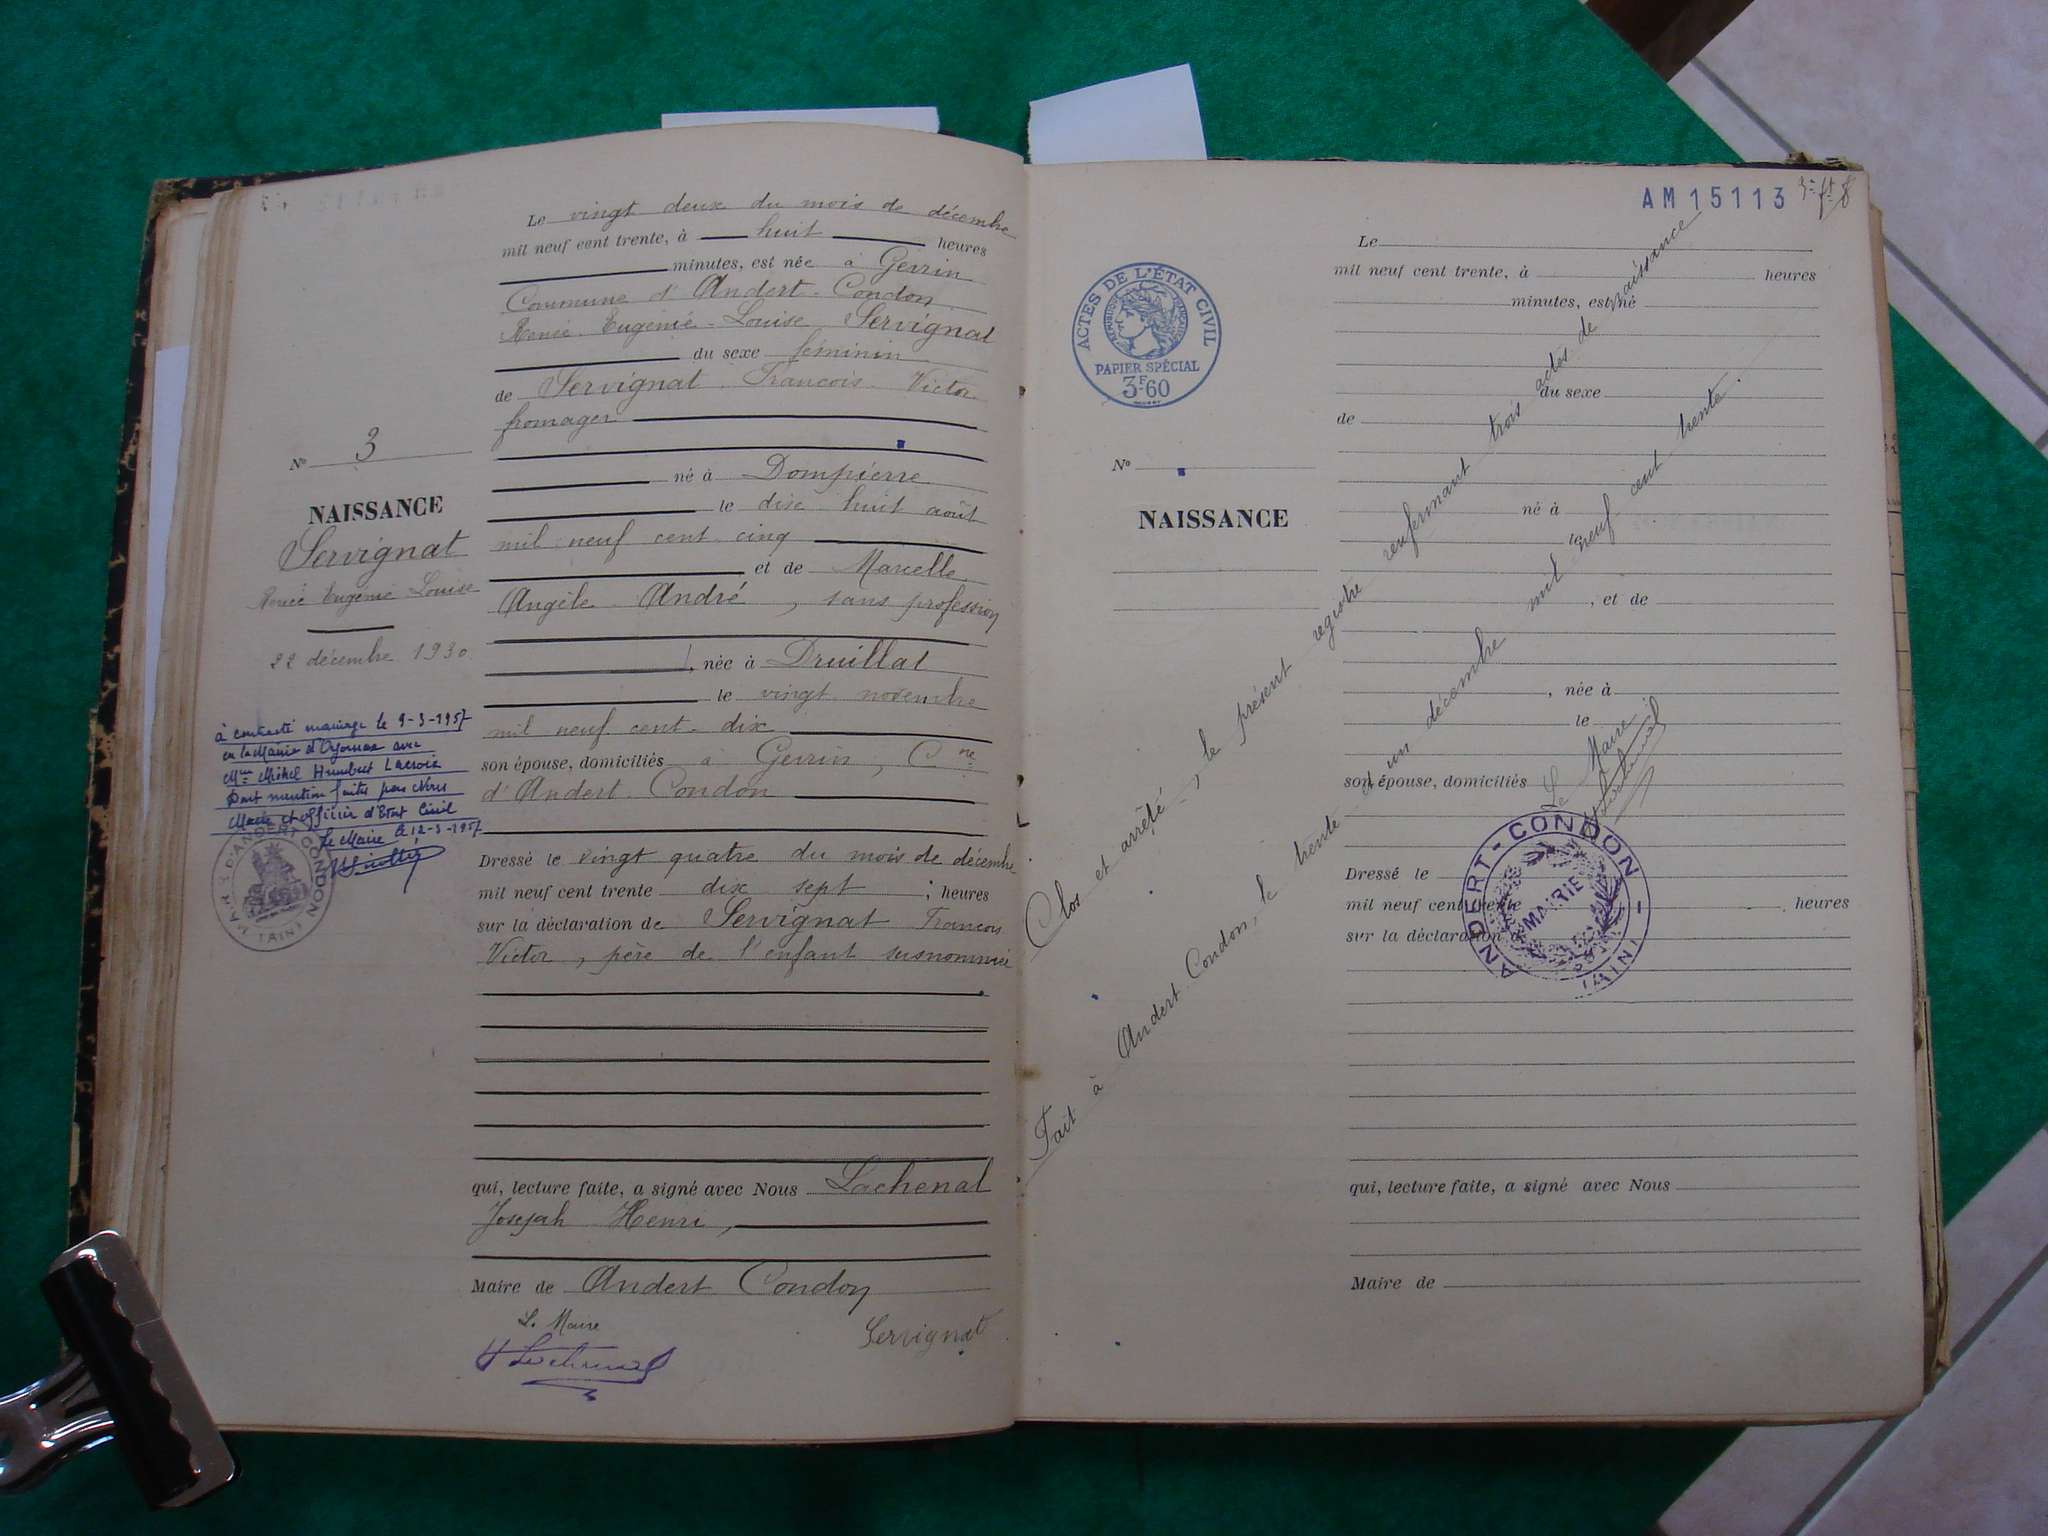 Le vingt deux du mois de décembre
mil neuf cent trente, à huit heures
minutes, est née à Gevrin
Commune d'Andert-Condon
Renée-Eugénie-Louise Servignat
du sexe féminin
de Servignat François Victor
fromager
né à Dompierre
le dix huit août
mil neuf cent cinq
et de Marcelle
Angèle André, sans profession
, née à Druillat
le vingt novembre
mil neuf cent dix
son épouse, domiciliés à Gevrin, Cne
d'Andert-Condon
Dressé le vingt quatre du mois de décembre
mil neuf cent trente dix sept ; heures
sur la déclaration de Servignat François
Victor, père de l'enfant susnommée
qui, lecture faite, a signé avec Nous Lachenal
Joseph Henri,
Maire de Andert Condon
Le Maire
H Lachenal
Servignat
No 3
NAISSANCE
Servignat
Renée Eugénie Louise
22 décembre 1930
à contracté mariage le 9-3-1957
en la Mairie d'Oyonnax avec
Mr Michel Humbert Lacroix
Dont mention faite par Nous
Maire et officier d'Etat Civil
Le Maire le 12-3-1957
MAIRIE D'ANDERT-CONDON (AIN)
AM15113
ACTES DE L'ÉTAT CIVIL
RÉPUBLIQUE FRANÇAISE
PAPIER SPÉCIAL
3F.60
No
NAISSANCE
Le
mil neuf cent trente, à heures
minutes, est né
du sexe
de
né à
le
, et de
, née à
le
son épouse, domiciliés
Dressé le
mil neuf cent trente , heures
sur la déclaration de
qui, lecture faite, a signé avec Nous
Maire de
Clos et arrêté, le présent registre renfermant trois actes de naissance
Fait à Andert Condon, le trente et un décembre mil neuf cent trente.
Le Maire
H Lachenal
ANDERT-CONDON - (AIN)
MAIRIE